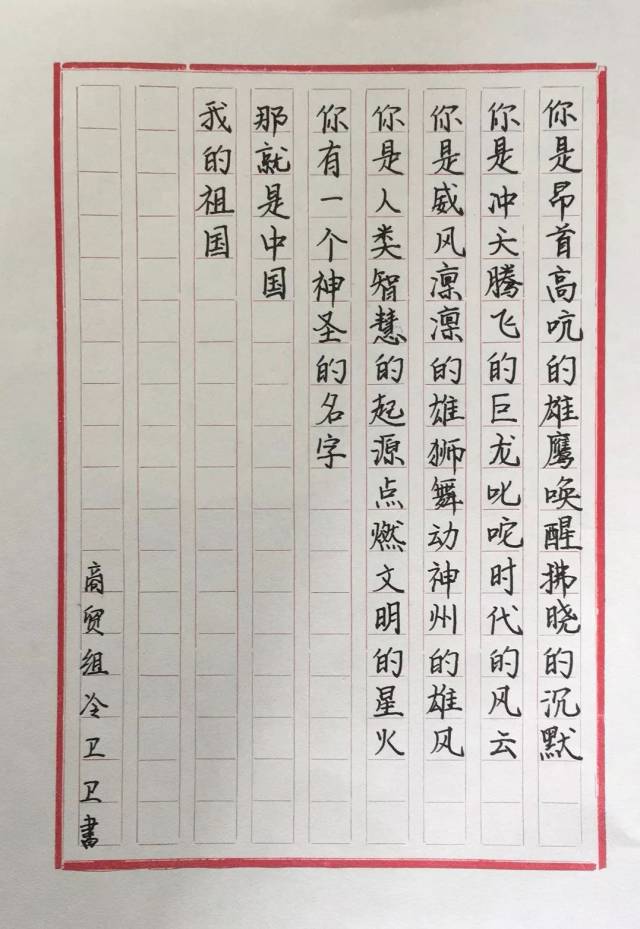 你是昂首高吭的雄鹰唤醒拂晓的沉默
你是冲天腾飞的巨龙叱咤时代的风云
你是威风凛凛的雄狮舞动神州的雄风
你是人类智慧的起源点燃文明的星火
你有一个神圣的名字
那就是中国
我的祖国
商贸组冷卫卫書